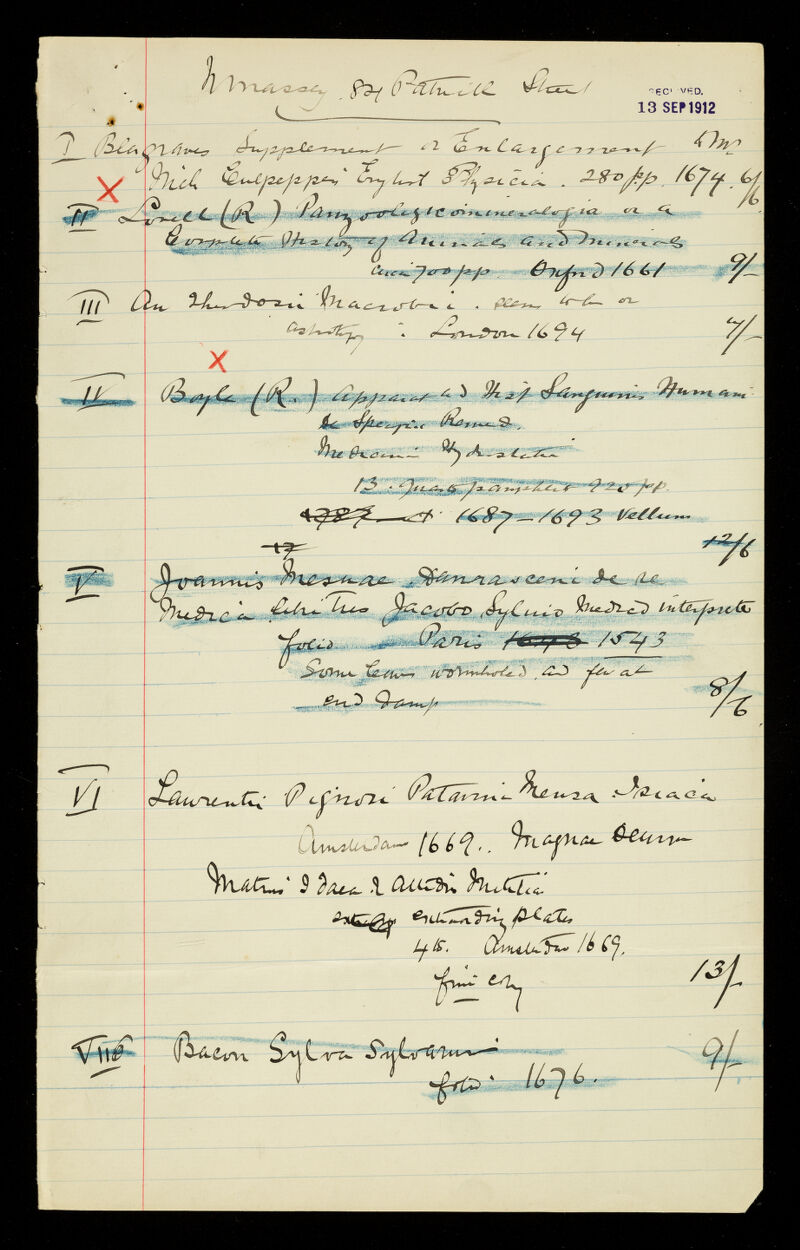 Massey. 84 Patrick Street
RECEIVED.
13 SEP 1912
I Blagraves Supplement or Enlargement to Mr
Nich Culpeppers English Physicia. 280 pp. 1674. 6/6
II Lovell (R) Panzoologicomineralogia or a
Complete History of Animals and Minerals
circa 700 pp. Oxford 1661 9/-
III Au Theodosii Macrobii. seems to be on
astrology : London 1694 7/-
IV Boyle (R.) Apparat ad Hist Sanguinis Humani
Specific Remed.
Medicina Hydrostatica
13. Quarto pamphlets 920 pp.
1687-1693 Vellum
12/6
V Joannis Mesuae Damasceni de re
Medica Libri Tres Jacobo Sylvio Medico interprete
folio Paris 1643 1543
Some leaves wormholed and few at
end damp 8/6
VI Laurentii Pignori Patavini Mensa Isiaca
Amsterdam 1669. Magnae Deum
Matris Idaea & Attidis Initia
extraordinary plates
4to. Amsterdam 1669.
fine copy 13/-
VII Bacon Sylva Sylvarum
folio 1676. 9/-